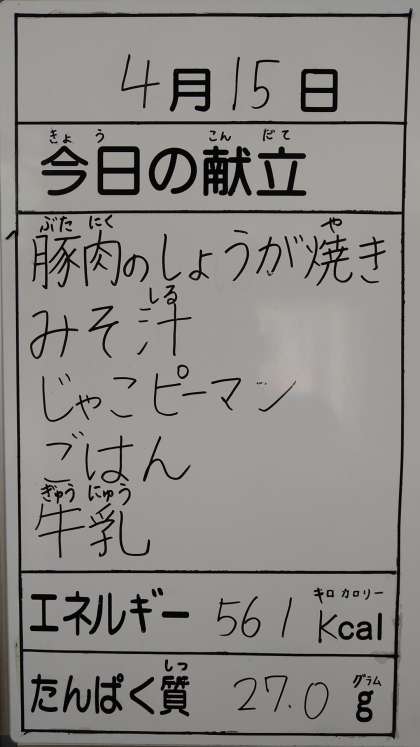 4月15日
きょう こんだて
今日の献立
ぶた にく や
豚肉のしょうが焼き
しる
みそ汁
じゃこピーマン
ごはん
ぎゅう にゅう
牛乳
キロ カロリー
エネルギー 561 Kcal
しつ グラム
たんぱく質 27.0 g